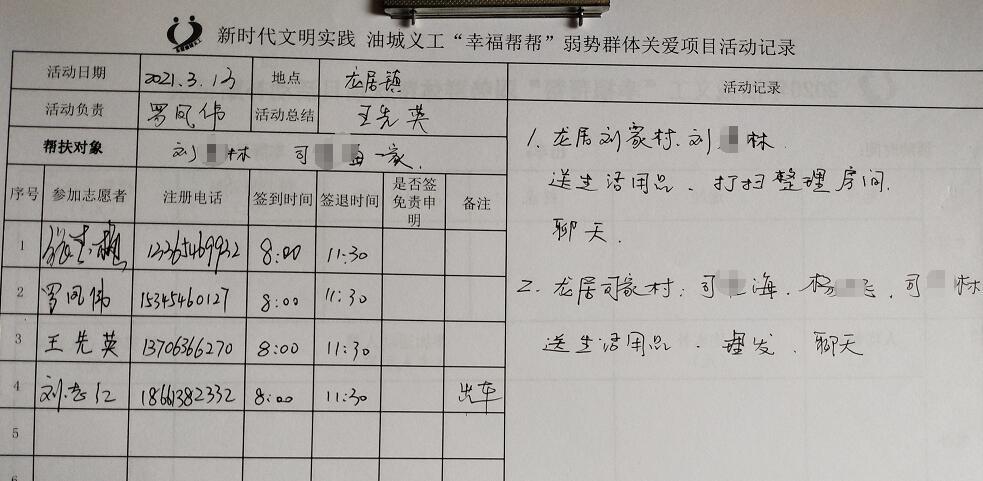 新时代文明实践 油城义工“幸福帮帮”弱势群体关爱项目活动记录
活动日期 2021.3.13 地点 龙居镇
活动负责 罗凤伟 活动总结 王先英
帮扶对象 刘 林 司 一家.
序号 参加志愿者 注册电话 签到时间 签退时间 是否签免责申明 备注
1 13365469932 8:00 11:30
2 罗凤伟 15345460127 8:00 11:30
3 王先英 13706366270 8:00 11:30
4 刘志仁 18661382332 8:00 11:30 出车
5
6
活动记录
1. 龙居刘家村. 刘 林
送生活用品、打扫整理房间.
聊天.
2. 龙居司家村: 司 海. 杨 飞. 司 林
送生活用品 理发、聊天